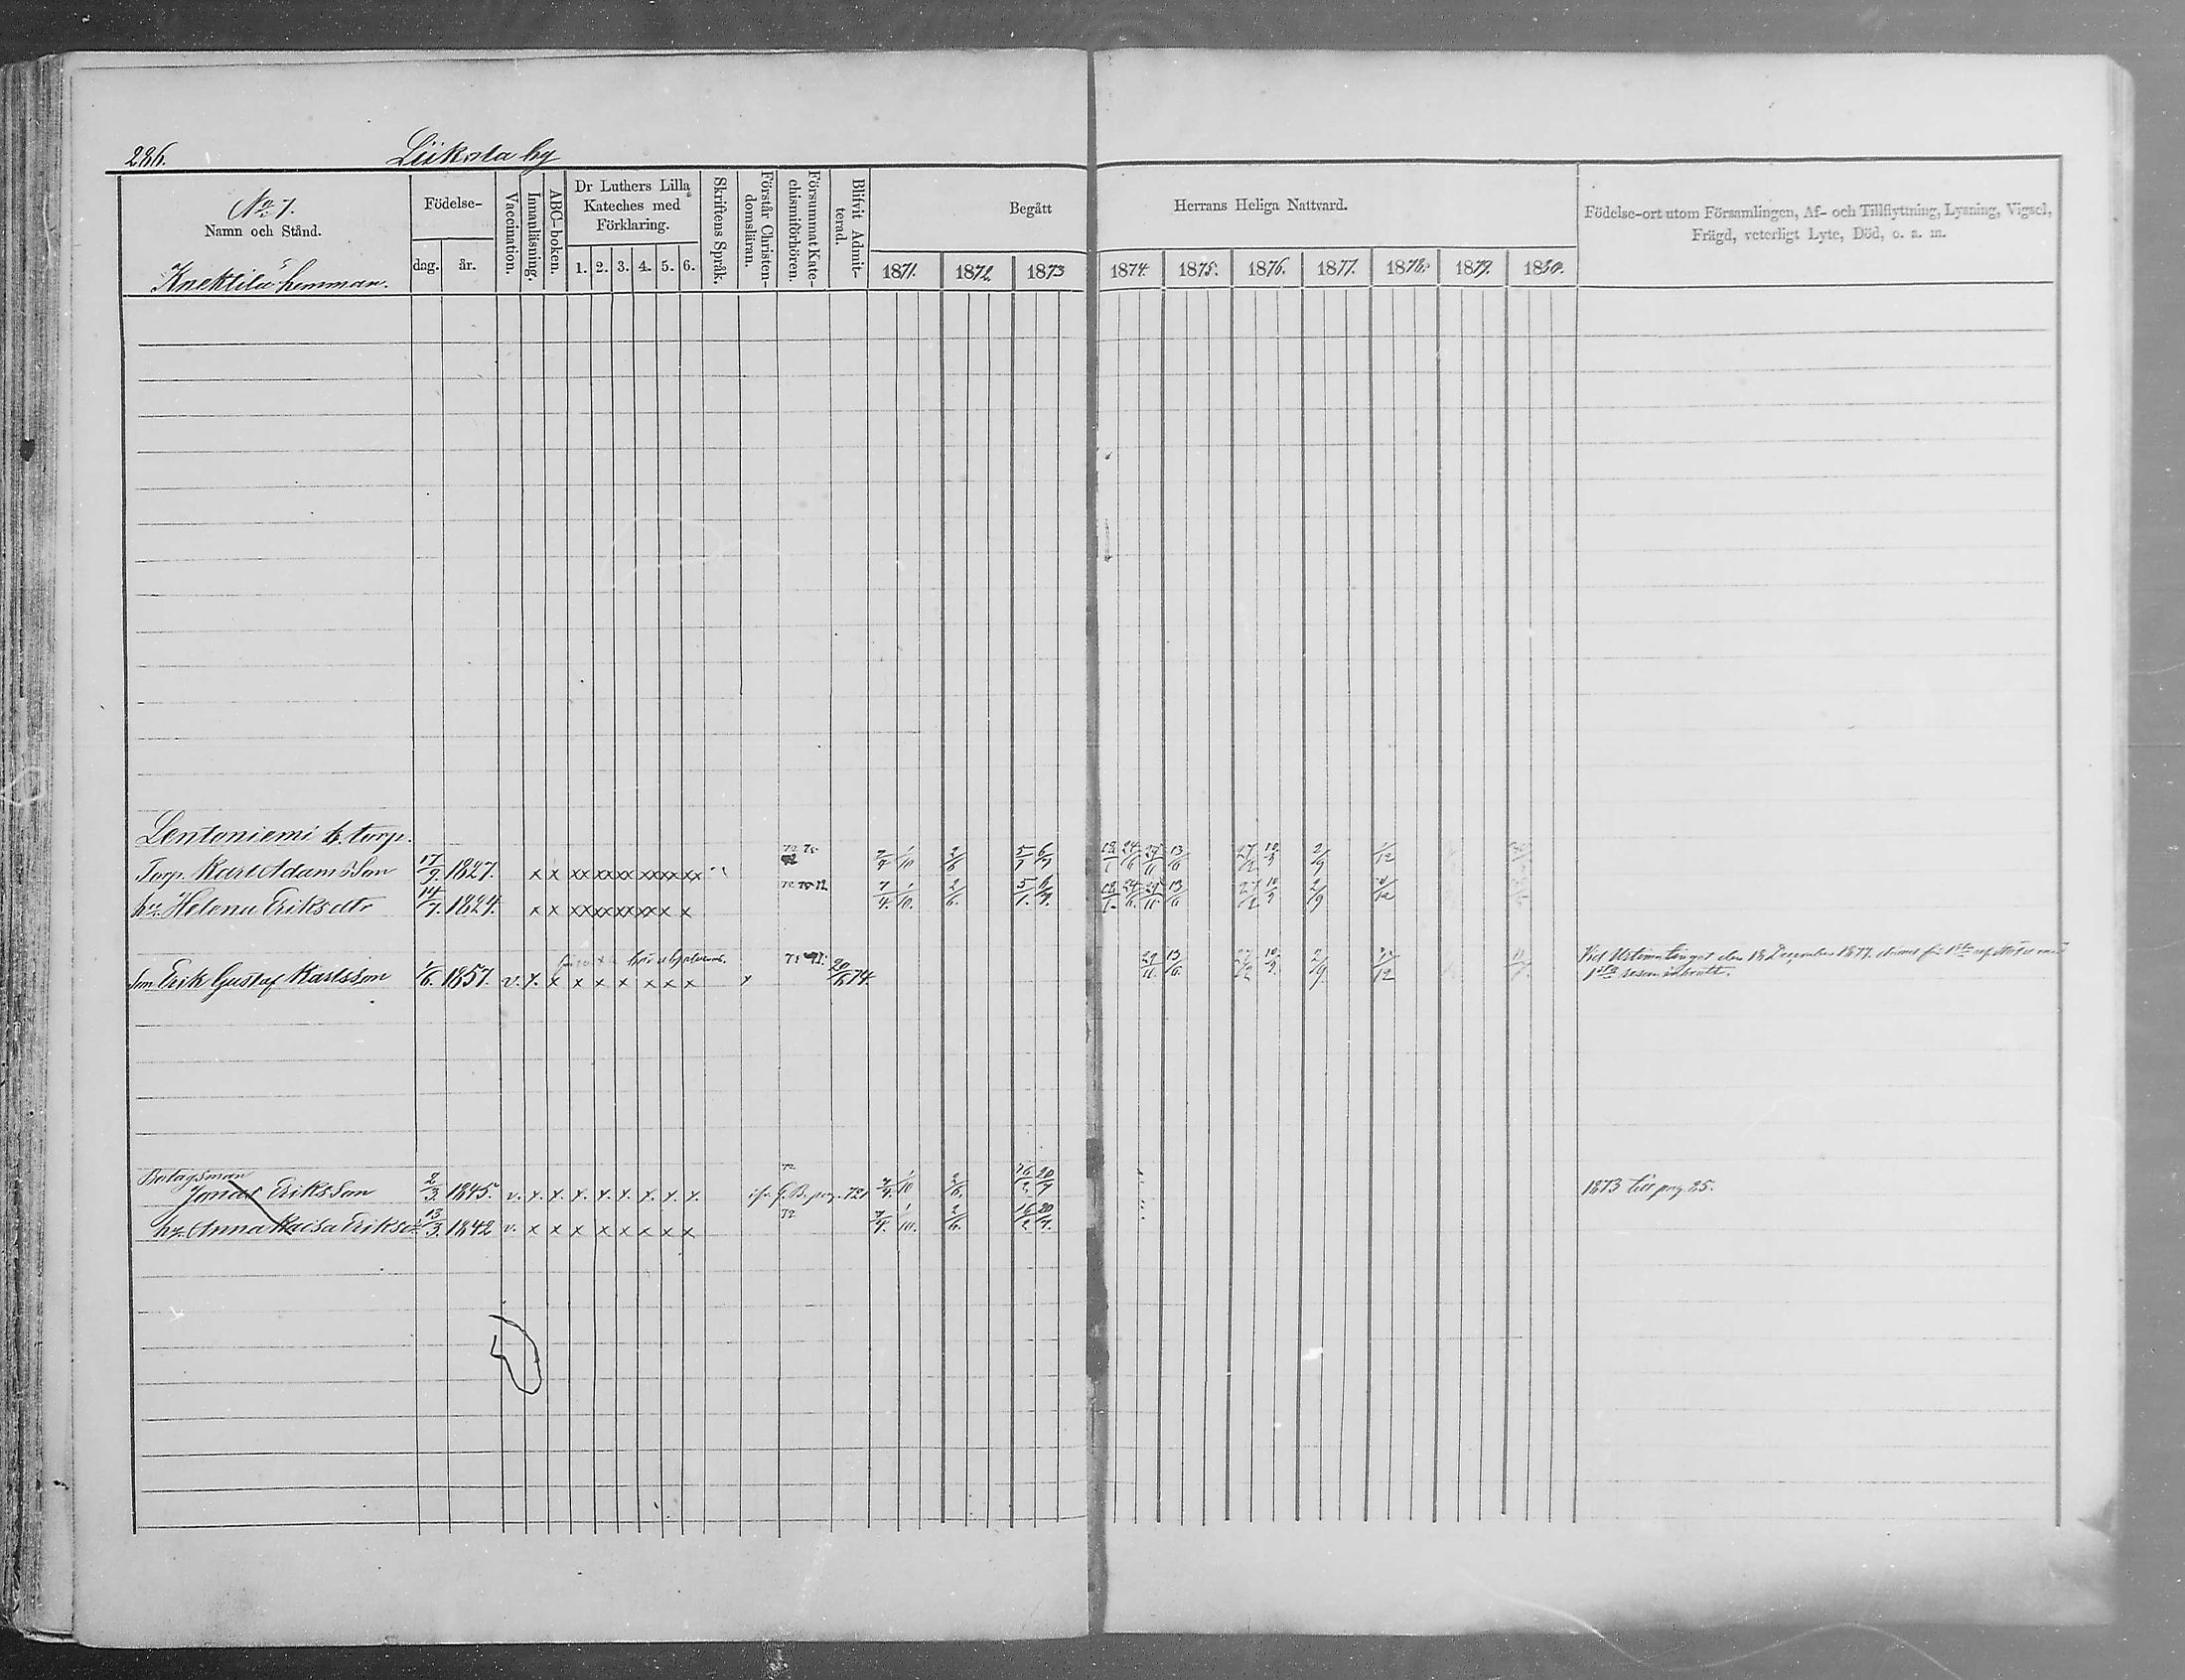 286.
Liikola by
No 7.
Namn och Stånd.
Knektilä hemman.
Födelse-
dag. år.
Vaccination.
Innanläsning.
ABC-boken.
Dr Luthers Lilla
Kateches med
Förklaring.
1. 2. 3. 4. 5. 6.
Skriftens Språk.
Förstår Christen-
domsläran.
Försummat Kate-
chismiförhören.
Blifvit Admit-
terad.
Begått Herrans Heliga Nattvard.
1871. 1872. 1873 1874. 1875. 1876. 1877. 1878. 1879. 1880.
Födelse-ort utom Församlingen, Af- och Tillflyttning, Lysning, Vigsel,
Frägd, veterligt Lyte, Död, o. s. m.
Lentoniemi torp.
Torp. Karl Adamsson 17/9. 1827. x x xx xx xx xx xx xx 7/4 1/10 2/6 5/1 6/7 18/1 24/6 29/11 13/6 27/2 10/9 2/9 /12
hu. Helena Eriksdtr 14/7. 1824. x x xx xx xx xx x x 7/4. 1/10. 2/6. 5/1. 6/7. 18/1. 24/6. 29/11. 13/6 27/2 10/9 2/9 /12
Son Erik Gustaf Karlsson 1/6. 1857. v. x. x x x x x x x x 20/6 74. 29/11. 13/6. 27/2 10/9. 2/9. /12 Vid den 18 December 1877.
Bolagsman
Jonas Eriksson 2/3. 1845. v. x. x. x. x. x. x. x. x. 72 7/4. 1/10 2/6. 16/2. 20/7 1873 till pag. 25.
hu. Anna Kaisa Eriksdr 13/3. 1842 v. x x x x x x x x 72 7/4. 1/10. 2/6. 16/2. 20/7.